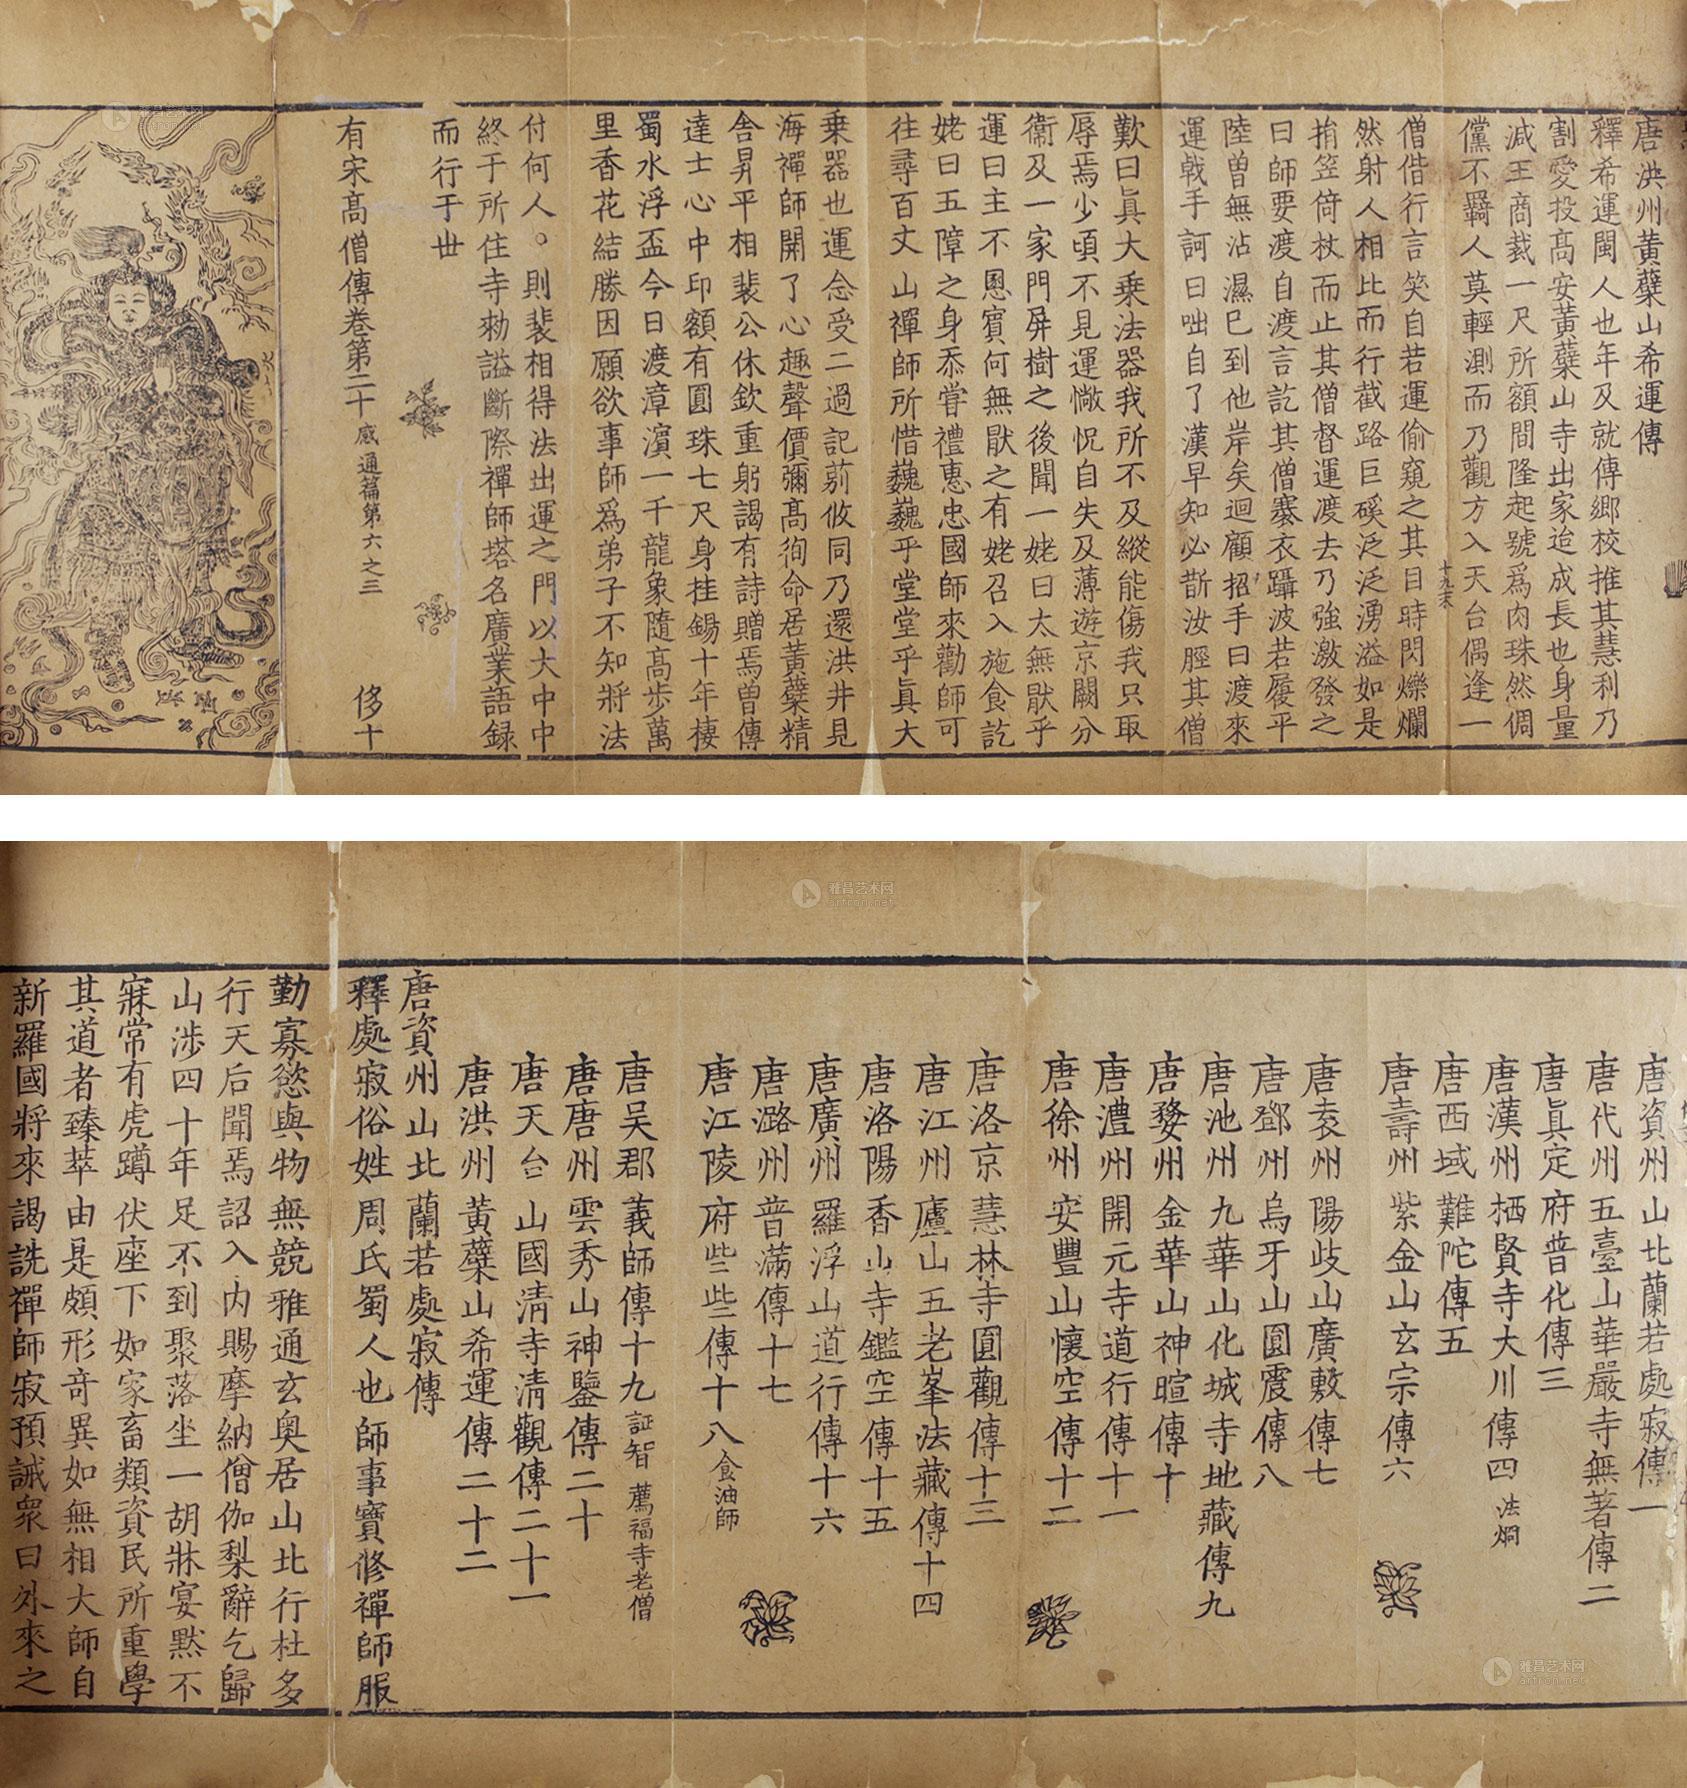 唐洪州黃蘗山希運傳
釋希運閩人也年及就傳鄉校推其慧利乃
割愛投髙安黃蘗山寺出家迨成長也身量
減王商裁一尺所額間隆起號爲肉珠然倜
儻不羇人莫輕測而乃觀方入天台偶逢一
十九末
僧偕行言笑自若運偷窺之其目時閃爍爛
然射人相比而行截路巨磎泛泛湧溢如是
捐笠倚杖而止其僧督運渡去乃強激發之
曰師要渡自渡言訖其僧褰衣躡波若履平
陸曾無沾濕已到他岸矣迴顧招手曰渡來
運戟手訶曰咄自了漢早知必斮汝脛其僧
歎曰眞大乗法器我所不及縱能傷我只取
辱焉少頃不見運慠怳自失及薄遊京闕分
衞及一家門屏樹之後聞一姥曰太無猒乎
運曰主不慁賔何無猒之有姥召入施食訖
姥曰五障之身忝甞禮惠忠國師來勸師可
往尋百丈山禪師所惜巍巍乎堂堂乎眞大
乗器也運念受二過記莂攸同乃還洪井見
海禪師開了心趣聲價彌髙徇命居黃蘗精
舍昇平相裴公休欽重躬謁有詩贈焉曾傳
達士心中印額有圓珠七尺身挂錫十年棲
蜀水浮盃今日渡漳濵一千龍象隨髙步萬
里香花結勝因願欲事師爲弟子不知將法
付何人。則裴相得法出運之門以大中中
終于所住寺勑謚斷際禪師塔名廣業語録
而行于世
有宋髙僧傳卷第二十 感通篇第六之三 侈十
唐資州山北蘭若處寂傳一
唐代州五臺山華嚴寺無著傳二
唐眞定府普化傳三
唐漢州栖賢寺大川傳四 法烱
唐西域難陀傳五
唐壽州紫金山玄宗傳六
唐袁州陽歧山廣敷傳七
唐鄧州烏牙山圓震傳八
唐池州九華山化城寺地藏傳九
唐婺州金華山神暄傳十
唐澧州開元寺道行傳十一
唐徐州安豐山懷空傳十二
唐洛京慧林寺圓觀傳十三
唐江州廬山五老峯法藏傳十四
唐洛陽香山寺鑑空傳十五
唐廣州羅浮山道行傳十六
唐潞州普滿傳十七
唐江陵府些些傳十八 食油師
唐吴郡義師傳十九 証智 薦福寺老僧
唐唐州雲秀山神鑒傳二十
唐天台山國清寺清觀傳二十一
唐洪州黃蘗山希運傳二十二
唐資州山北蘭若處寂傳
釋處寂俗姓周氏蜀人也師事寶修禪師服
勤寡慾與物無競雅通玄奥居山北行杜多
行天后聞焉詔入内賜摩納僧伽梨辭乞歸
山涉四十年足不到聚落坐一胡牀宴黙不
寐常有虎蹲伏座下如家畜類資民所重學
其道者臻萃由是頗形竒異如無相大師自
新羅國將來謁詵禪師寂預誡衆曰外來之